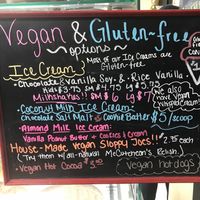 Vegan & Gluten-free
options
Most of our Ice Creams are
Gluten-free
Ice Cream
Chocolate & Vanilla Soy & Rice Vanilla
Kid $3.75 SM $4.75 LG $5.75
Milkshakes! SM $6 LG $7
Coconut Milk Ice Creams
Chocolate Salt Malt Cookie Butter $5/scoop
Almond Milk Ice Cream:
Vanilla Peanut Butter + Cookies & Cream
House-Made Vegan Sloppy Joes!!
(Try them w/ all-natural McCutcheon's Relish)
Vegan Hot Cocoa
vegan hot-dogs